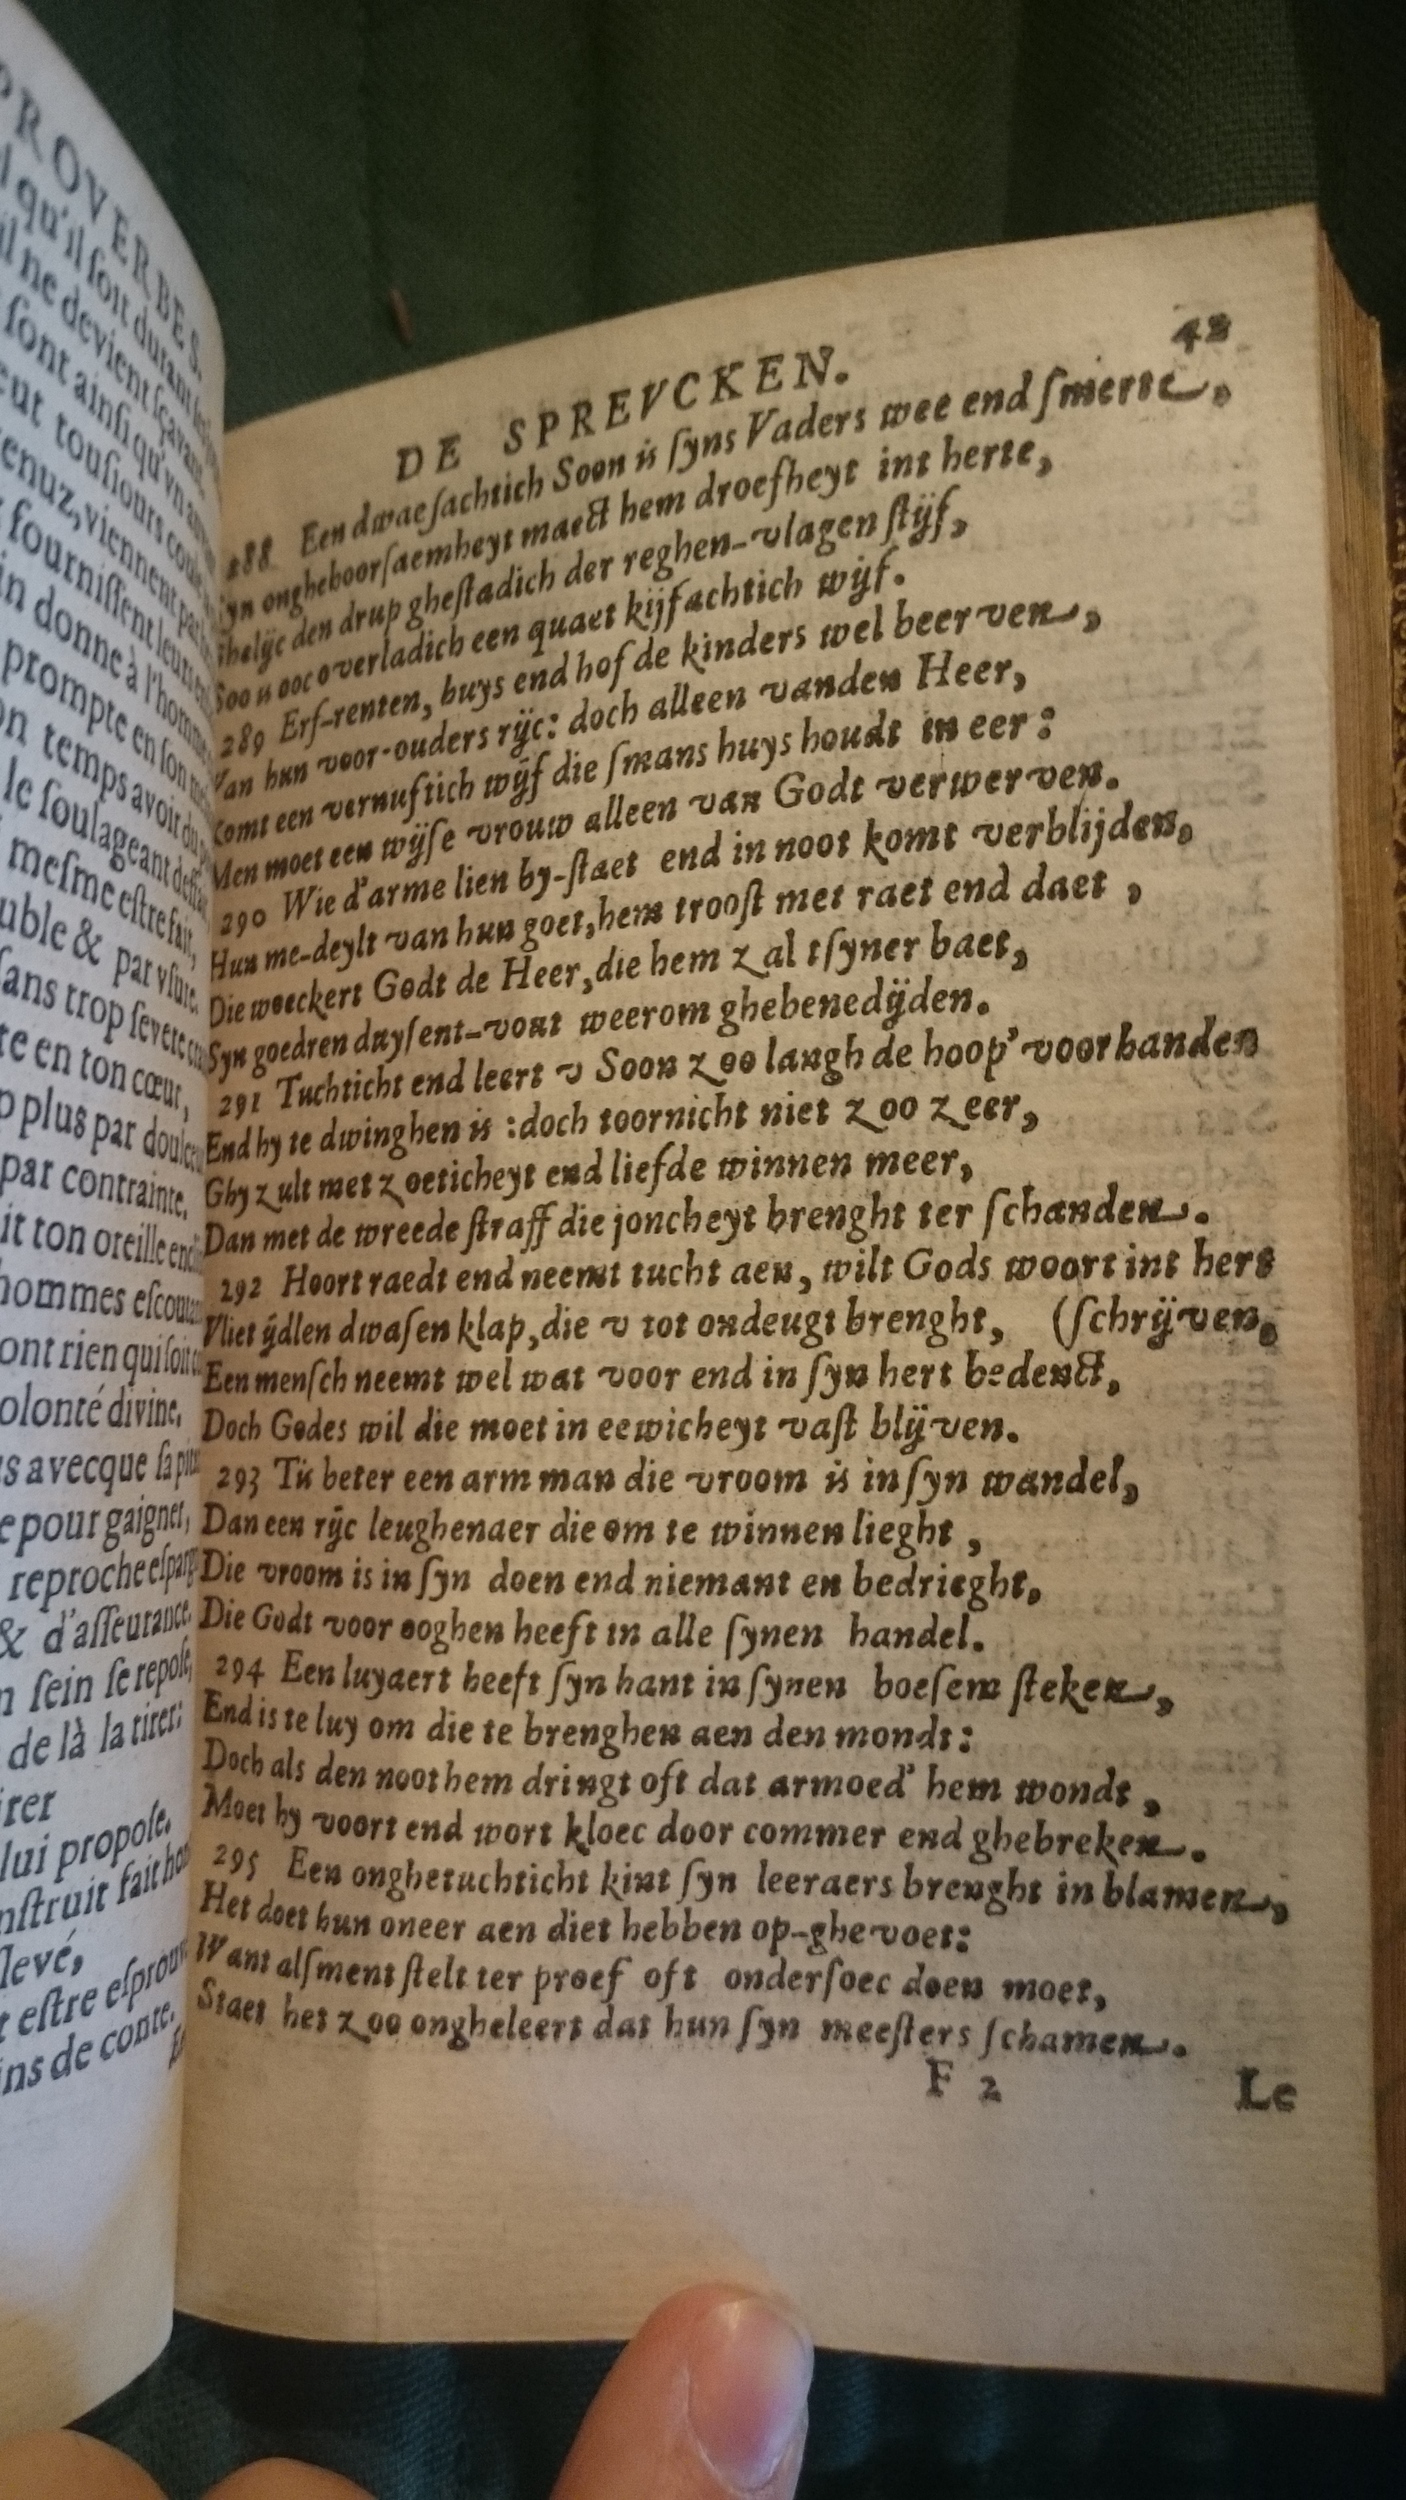 PROVERBES.
qu'il soit durant
il ne devient sçavant.
sont ainsi qu'vn
tousiours
venuz, viennent
fournissent leur
in donne à l'homme
prompte en son
on temps avoir du
le soulageant
mesme estre fait,
uble & par vsure.
sans trop severe
te en ton cœur,
plus par
par contrainte.
it ton oreille
hommes
ont rien qui soit
olonté divine,
s avecque sa
e pour gaigner,
reproche
& d'asseurance,
n sein se repose,
de là la tirer:
irer
lui propose.
nstruit fait
levé,
estre
ins de conte.
DE SPREVCKEN. 42
288 Een dwaesachtich Soon is syns Vaders wee end smerte,
Syn onghehoorsaemheyt maect hem droefheyt int herte,
Ghelijc den drup ghestadich der reghen-vlagen stijf,
Soo is ooc overladich een quaet kijfachtich wijf.
289 Erf-renten, huys end hof de kinders wel beerven,
Van hun voor-ouders rijc: doch alleen vanden Heer,
Comt een vernuftich wijf die smans huys houdt in eer:
Men moet een wijse vrouw alleen van Godt verwerven.
290 Wie d'arme lien by-staet end in noot komt verblijden,
Hun me-deylt van hun goet, hem troost met raet end daet,
Die woeckert Godt de Heer, die hem zal tsyner baet,
Syn goedren duysent-vout weerom ghebenedijden.
291 Tuchticht end leert v Soon zoo langh de hoop' voorhanden
End hy te dwinghen is: doch toornicht niet zoo zeer,
Ghy zult met zoeticheyt end liefde winnen meer,
Dan met de wreede straff die joncheyt brenght ter schanden.
292 Hoort raedt end neemt tucht aen, wilt Gods woort int hert
Vliet ijdlen dwasen klap, die v tot ondeugt brenght, (schrijven,
Een mensch neemt wel wat voor end in syn hert bedenct,
Doch Godes wil die moet in eewicheyt vast blijven.
293 Tis beter een arm man die vroom is in syn wandel,
Dan een rijc leughenaer die om te winnen lieght,
Die vroom is in syn doen end niemant en bedrieght,
Die Godt voor ooghen heeft in alle synen handel.
294 Een luyaert heeft syn hant in synen boesem steken,
End is te luy om die te brenghen aen den mondt:
Doch als den noot hem dringt oft dat armoed' hem wondt,
Moet hy voort end wort kloec door commer end ghebreken.
295 Een onghetuchticht kint syn leeraers brenght in blamen,
Het doet hun oneer aen diet hebben op-ghevoet:
Want alsment stelt ter proef oft ondersoec doen moet,
Staet het zoo ongheleert dat hun syn meesters schamen.
F 2 Le